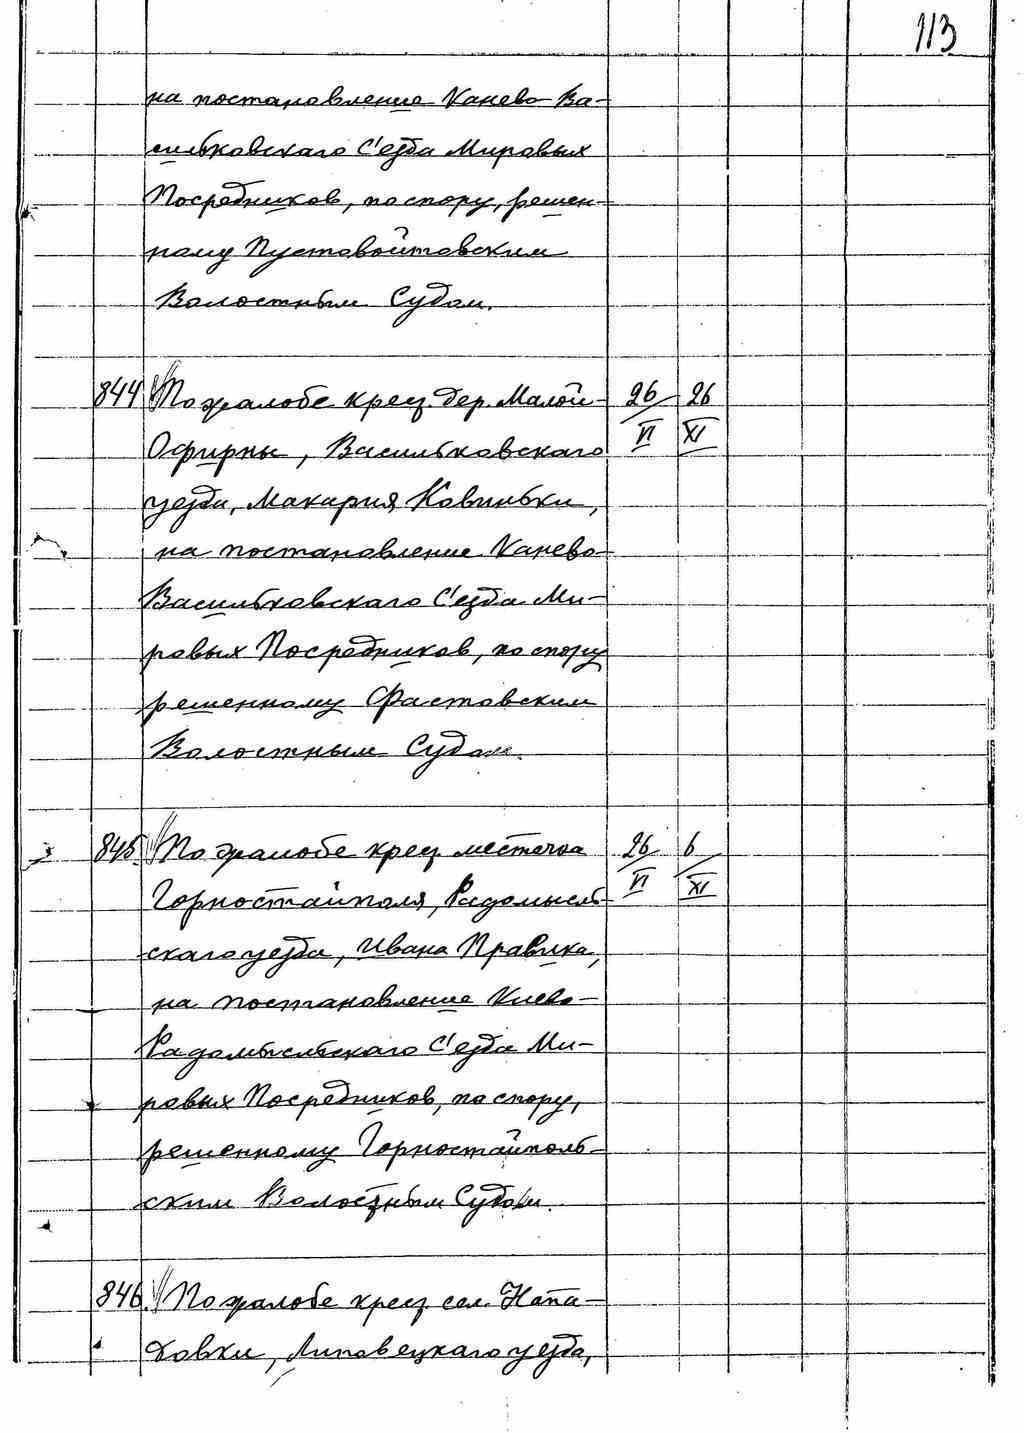 113
на постановление Канево-Ва-
сильковскаго С'езда Мировых
Посредников, по спору, решен-
ному Пустовойтовским
Волостным Судом.
844 По жалобе крест. дер. Малой 26/VI 26/XI
Офирны, Васильковскаго
уезда, Макария Ковильки,
на постановление Канево-
Васильковскаго С'езда Ми-
ровых Посредников, по спору
решенному Фастовским
Волостным Судом.
845. По жалобе крест. местечка 26/VI 6/XI
Горностайполя, Радомысль-
скаго уезда, Ивана Правика,
на постановление Киево-
Радомысльскаго С'езда Ми-
ровых Посредников, по спору,
решенному Горностайполь-
ским Волостным Судом.
846. По жалобе крест. сел. Напа-
довки, Липовецкаго уезда,